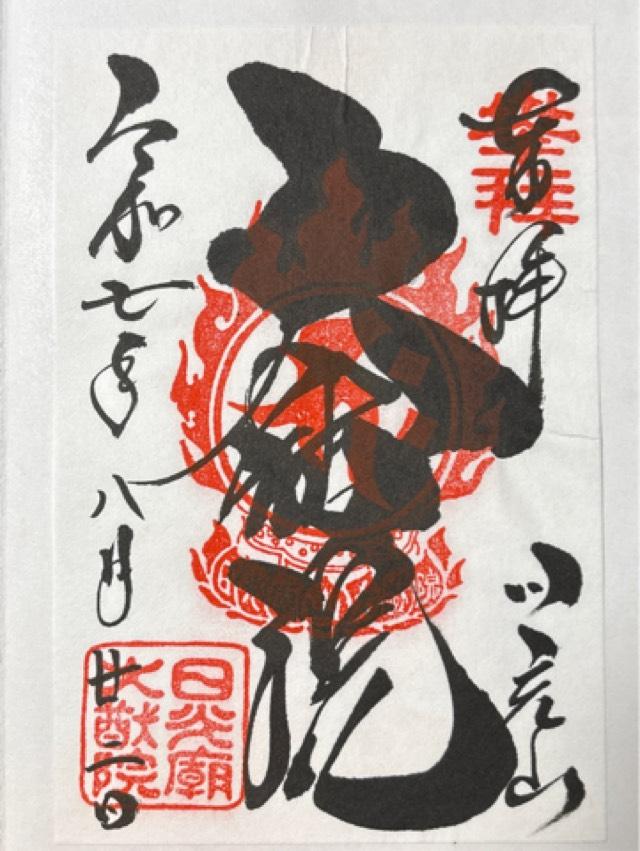 奉拝
日光山
大猷院
令和七年八月廿二日
日光廟
大猷院